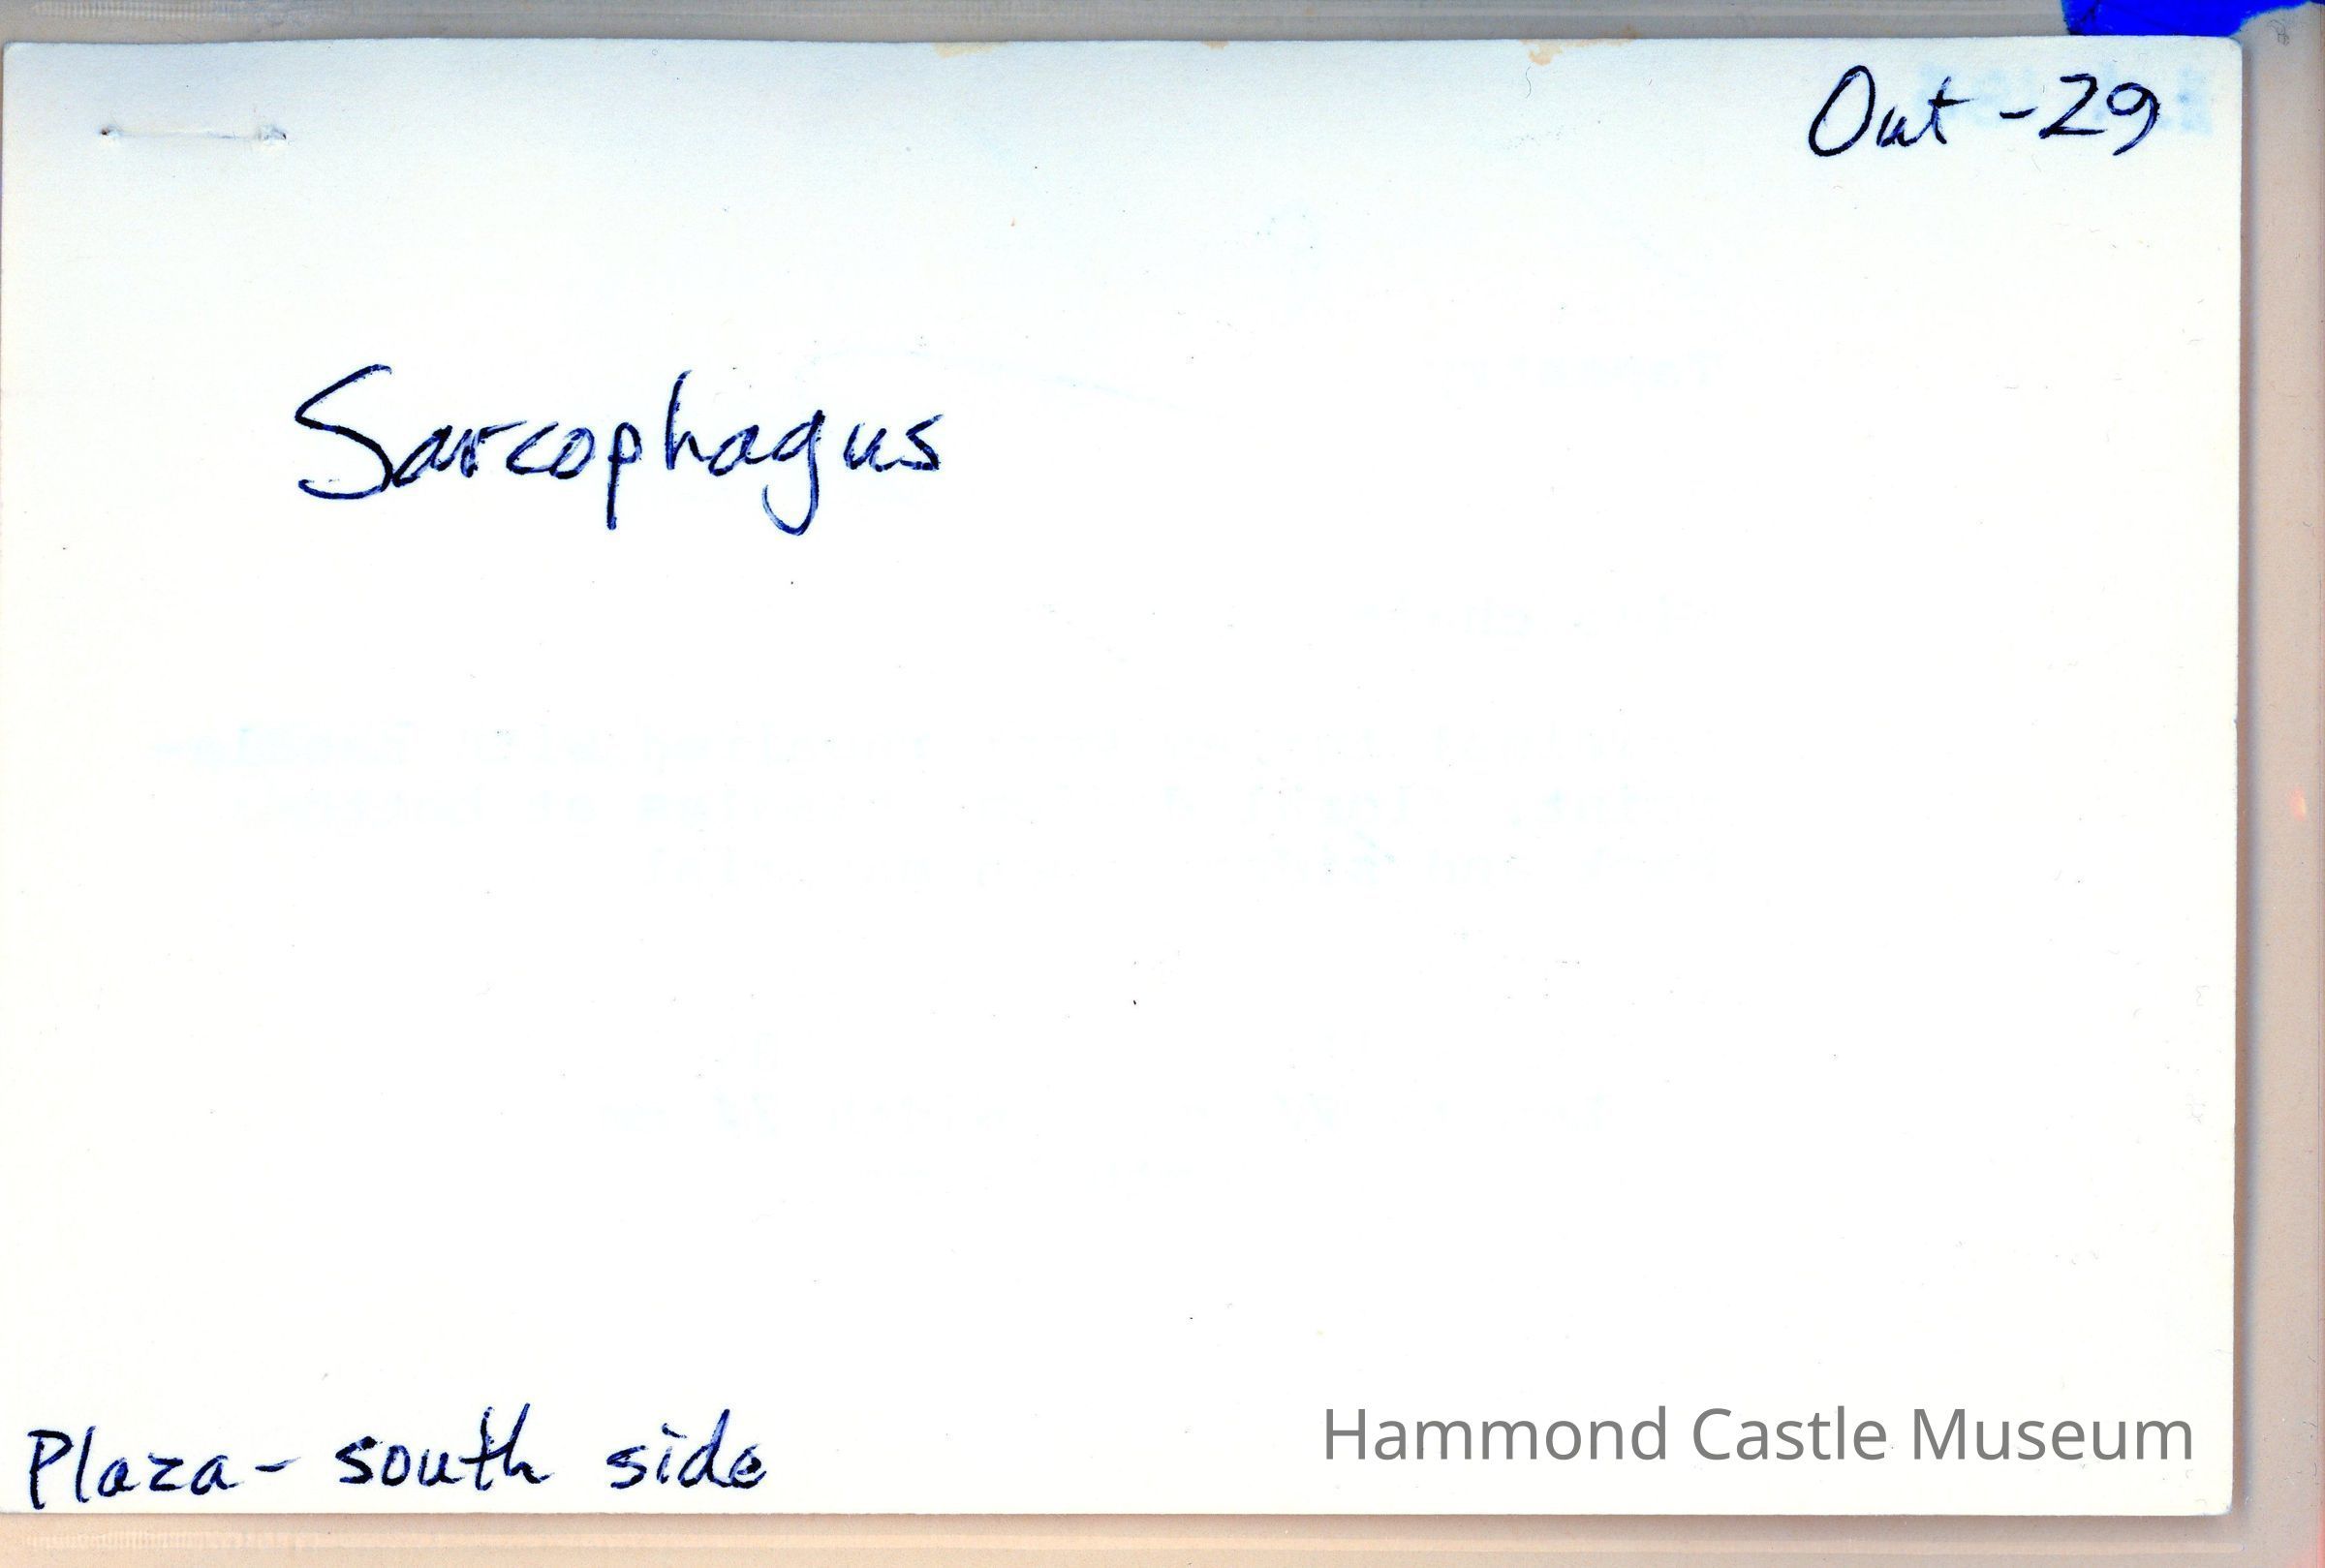 Out - 29
Sarcophagus
Plaza - south side
Hammond Castle Museum